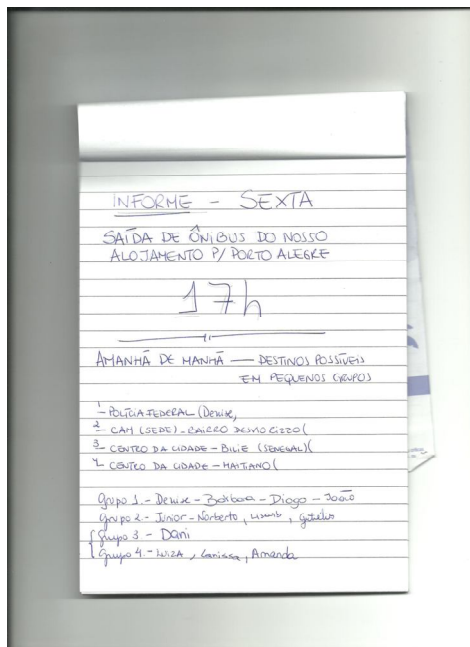 INFORME - SEXTA
SAÍDA DE ÔNIBUS DO NOSSO
ALOJAMENTO P/ PORTO ALEGRE
17h
AMANHÃ DE MANHÃ — DESTINOS POSSÍVEIS
EM PEQUENOS GRUPOS
1 - POLÍCIA FEDERAL (Denise,
2 - CAM (SEDE) - BAIRRO DESVIO RIZZO (
3 - CENTRO DA CIDADE - BILIE (SENEGAL) (
4 - CENTRO DA CIDADE - HAITIANO (
Grupo 1 - Denise - Bárbara - Diogo - João
Grupo 2 - Júnior - Norberto,
Grupo 3 - Dani
Grupo 4 - LUIZA, Larissa, Amanda